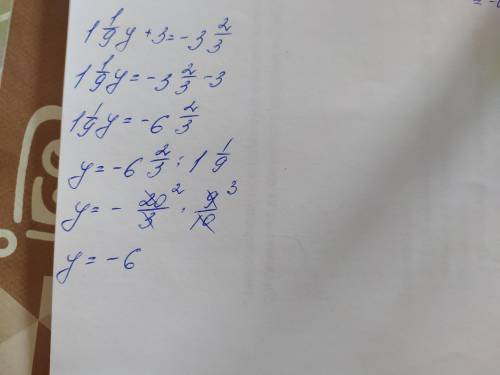 1 1/9 y + 3 = -3 2/3
1 1/9 y = -3 2/3 - 3
1 1/9 y = -6 2/3
y = -6 2/3 : 1 1/9
y = - 20/3 2 · 9/10 3
y = -6